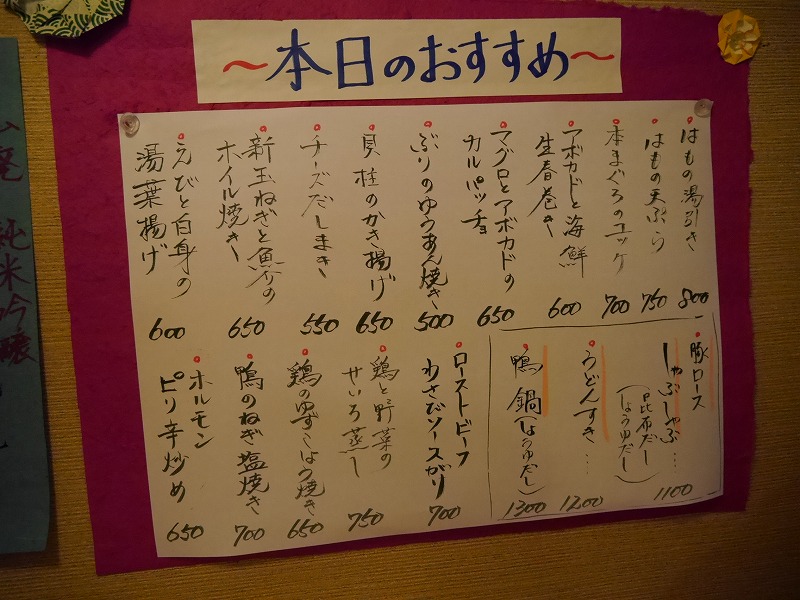 ～本日のおすすめ～
はもの湯引き
800
はもの天ぷら
750
本まぐろのユッケ
700
アボカドと海鮮
生春巻き
600
マグロとアボカドの
カルパッチョ
650
ぶりのゆうあん焼き
500
貝柱のかき揚げ
650
チーズだしまき
550
新玉ねぎと魚介の
ホイル焼き
650
えびと白身の
湯葉揚げ
600
豚ロース
しゃぶしゃぶ…
(昆布だし
しょうゆだし)
1100
うどんすき…
1200
鴨鍋(しょうゆだし)
1300
ローストビーフ
わさびソースがり
700
鶏と野菜の
せいろ蒸し
750
鶏のゆずこしょう焼き
650
鴨のねぎ塩焼き
700
ホルモン
ピリ辛炒め
650
純米吟醸